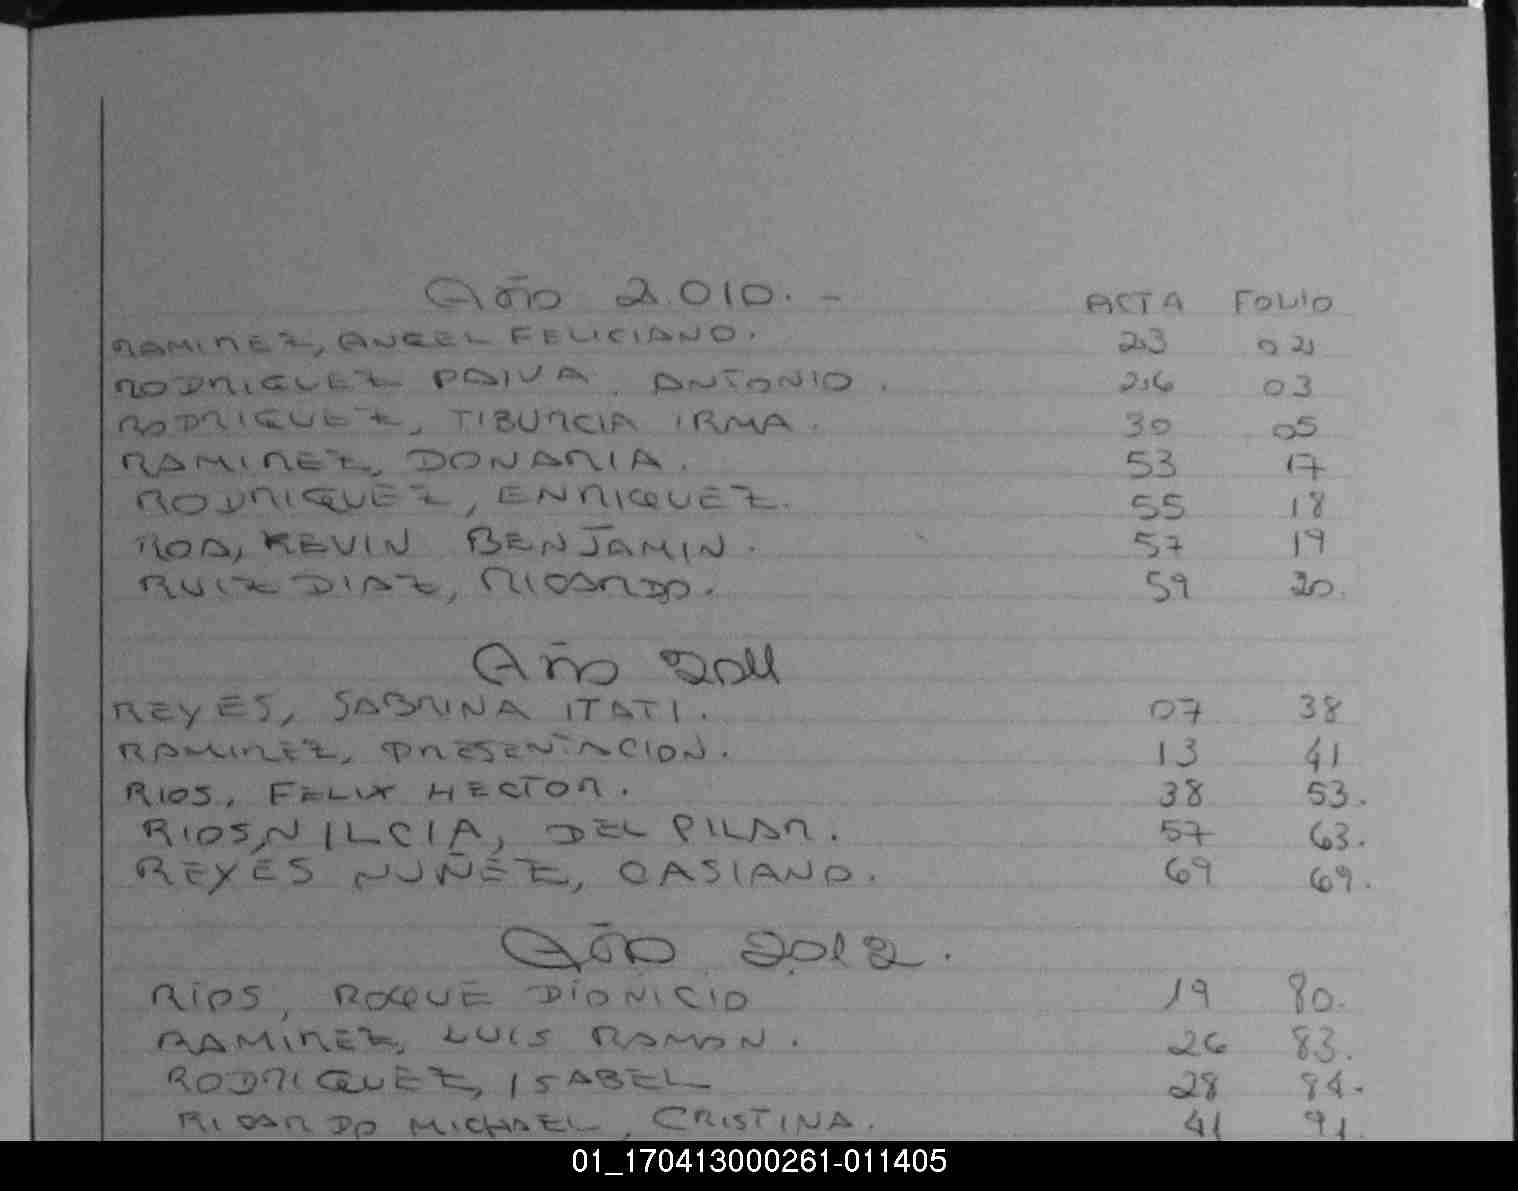 Año 2.010. - ACTA FOLIO
RAMIREZ, ANGEL FELICIANO. 23 02
RODRIGUEZ PAIVA, ANTONIO. 26 03
RODRIGUEZ, TIBURCIA IRMA. 30 05
RAMIREZ, DONARIA. 53 17
RODRIGUEZ, ENRIQUEZ. 55 18
ROA, KEVIN BENJAMIN. 57 19
RUIZ DIAZ, RICARDO. 59 20.
Año 2011
REYES, SABRINA ITATI. 07 38
RAMIREZ, PRESENTACION. 13 41
RIOS, FELIX HECTOR. 38 53.
RIOS, NILCIA, DEL PILAR. 57 63.
REYES NUÑEZ, CASIANO. 69 69.
Año 2.012.
RIOS, ROQUE DIONICIO 19 80.
RAMIREZ, LUIS RAMON. 26 83.
RODRIGUEZ, ISABEL 28 84.
RICARDO MICHAEL, CRISTINA. 41 91.
01_170413000261-011405